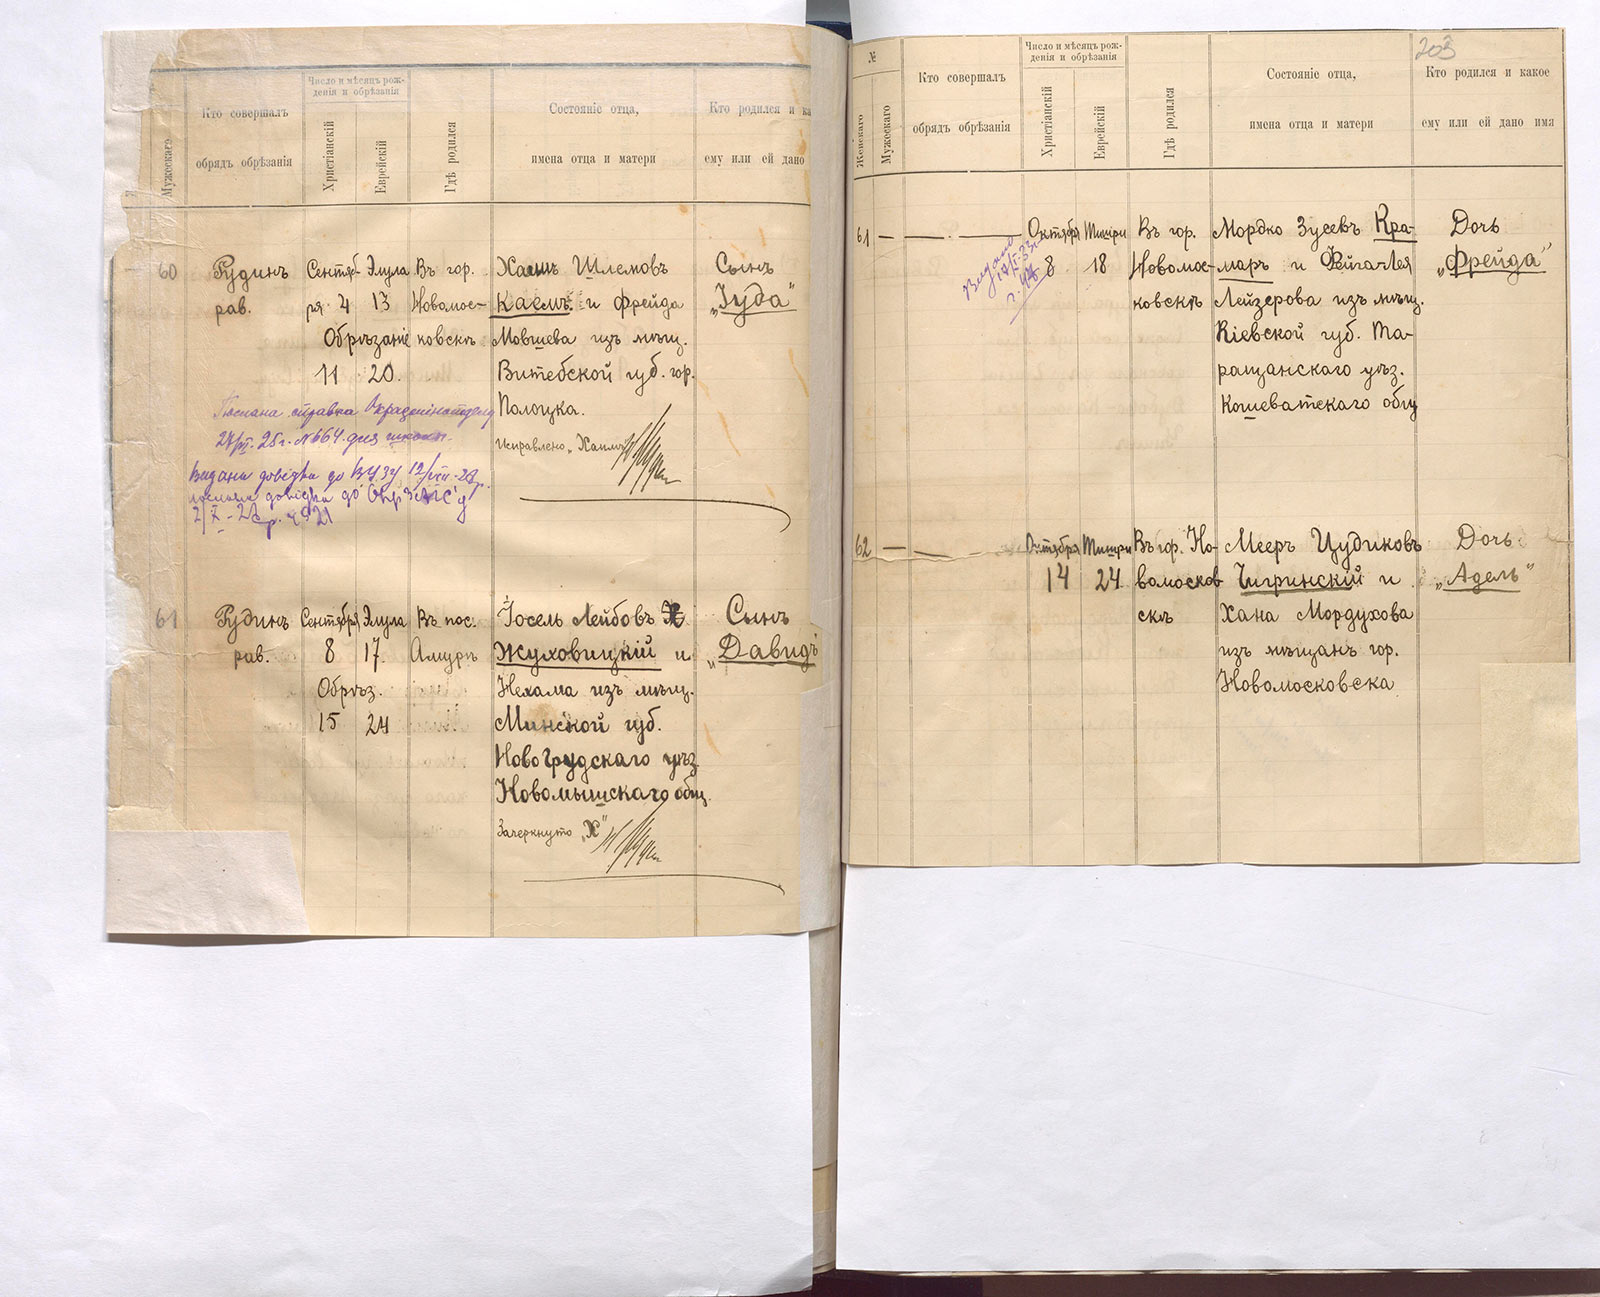 Мужескаго
Кто совершалъ
обрядъ обрѣзанія
Число и мѣсяцъ рож-
денія и обрѣзанія
Христіанскій
Еврейскій
Гдѣ родился
Состояніе отца,
имена отца и матери
Кто родился и ка
ему или ей дано
60
Рудинъ
рав.
Сентяб-
ря 4
Элула
13
Обрѣзаніе
11 20.
Въ гор.
Новомос-
ковскъ
Хаимъ Шлемовъ
Каемъ и Фрейда
Мовшева изъ мѣщ.
Витебской губ. гор.
Полоцка.
Исправлено „Хаимъ"
Сынъ
„Іуда"
Послана справка
25 г. №664 для школы.
Видана довідка до ВУЗУ 12/VIII-27р.
послана довідка до
2/X-27р.
61
Рудинъ
рав.
Сентября
8
Элула
17.
Обрѣз.
15 24
Въ пос.
Амуръ
Іосель Лейбовъ Х
Жуховицкій и
Нехама изъ мѣщ.
Минской губ.
Новогрудскаго уѣз.
Новомышскаго общ.
Зачеркнуто „Х"
Сынъ
„Давидъ"
203
№
Женскаго
Мужескаго
Кто совершалъ
обрядъ обрѣзанія
Число и мѣсяцъ рож-
денія и обрѣзанія
Христіанскій
Еврейскій
Гдѣ родился
Состояніе отца,
имена отца и матери
Кто родился и какое
ему или ей дано имя
61
Видано
Октября
8
Тишри
18
Въ гор.
Новомос-
ковскъ
Мордко Зусевъ Кра-
маръ и Фейга-Лея
Лейзерова изъ мѣщ.
Кіевской губ. Та-
ращанскаго уѣз.
Кошеватскаго общ
Дочь
„Фрейда"
62
Октября
14
Тишри
24
Въ гор. Но-
вомосков
скъ
Мееръ Цудиковъ
Чигринскій и
Хана Мордухова
изъ мѣщанъ гор.
Новомосковска
Дочь
„Адель"